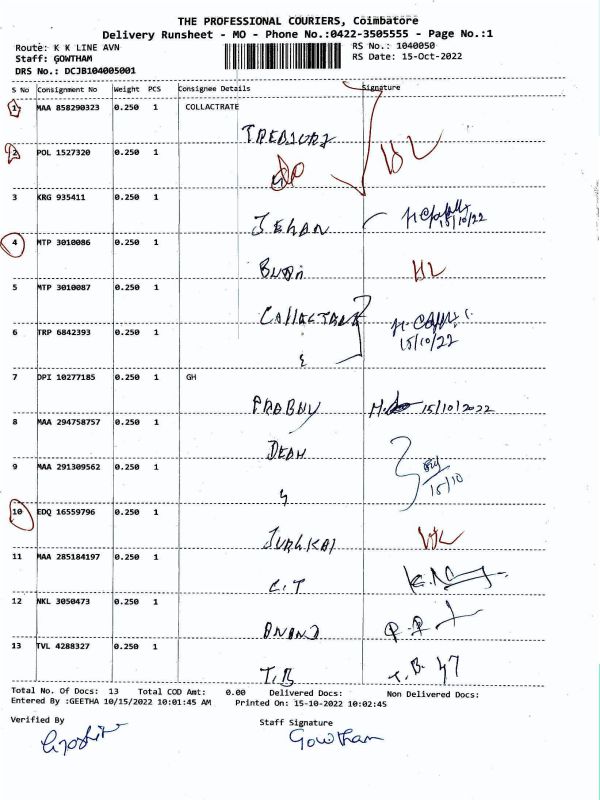 THE PROFESSIONAL COURIERS, Coimbatore
Delivery Runsheet - MO - Phone No.:0422-3505555 - Page No.:1
Route: K K LINE AVN
RS No.: 1040050
Staff: GOWTHAM
RS Date: 15-Oct-2022
DRS No.: DCJB104005001
S No Consignment No Weight PCS Consignee Details Signature
1 MAA 858290323 0.250 1 COLLACTRATE
TREASURY
2 POL 1527320 0.250 1
HL
3 KRG 935411 0.250 1
JEHAN
15/10/22
4 MTP 3010086 0.250 1
HL
5 MTP 3010087 0.250 1
6 TRP 6842393 0.250 1
15/10/22
7 DPI 10277185 0.250 1 GH
PRABHU 15/10/2022
8 MAA 294758757 0.250 1
DEAN
9 MAA 291309562 0.250 1
15/10
10 EDQ 16559796 0.250 1
11 MAA 285184197 0.250 1
C.T
12 NKL 3050473 0.250 1
ANAND
13 TVL 4288327 0.250 1
T.B T.B. 47
Total No. Of Docs: 13 Total COD Amt: 0.00 Delivered Docs: Non Delivered Docs:
Entered By :GEETHA 10/15/2022 10:01:45 AM Printed On: 15-10-2022 10:02:45
Verified By Staff Signature
Gowtham